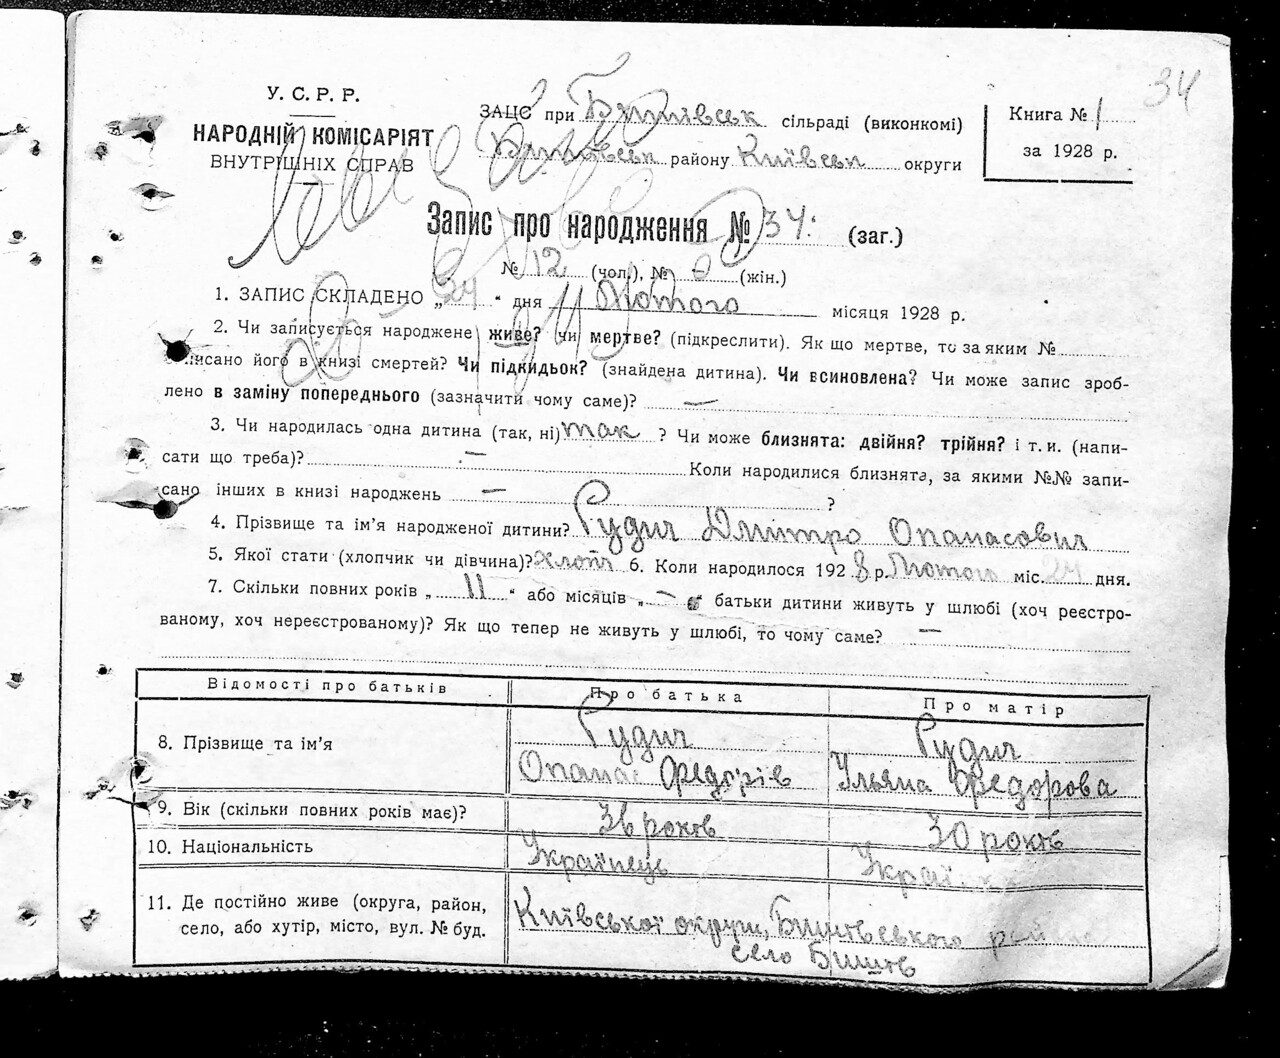 34
У. С. Р. Р.
НАРОДНІЙ КОМІСАРІЯТ
ВНУТРІШНІХ СПРАВ
ЗАЦС при Бишівськ сільраді (виконкомі)
Бишівськ району Київськ округи
Книга № 1
за 1928 р.
Запис про народження № 34. (заг.)
№ 12 (чол.), № (жін.)
1. ЗАПИС СКЛАДЕНО „ 24 “ дня Лютого місяця 1928 р.
2. Чи записується народжене живе? чи мертве? (підкреслити). Як що мертве, то за яким №
записано його в книзі смертей? Чи підкидьок? (знайдена дитина). Чи всиновлена? Чи може запис зроб-
лено в заміну попереднього (зазначити чому саме)? —
3. Чи народилась одна дитина (так, ні) так ? Чи може близнята: двійня? трійня? і т. и. (напи-
сати що треба)? — Коли народилися близнята, за якими №№ запи-
сано інших в книзі народжень — ?
4. Прізвище та ім’я народженої дитини? Рудич Дмитро Опанасович
5. Якої стати (хлопчик чи дівчина)? хлопч 6. Коли народилось 192 8 р. Лютого міс. 24 дня.
7. Скільки повних років „ 11 “ або місяців „ — “ батьки дитини живуть у шлюбі (хоч реєстро-
ваному, хоч нереєстрованому)? Як що тепер не живуть у шлюбі, то чому саме? —
Відомості про батьків Про батька Про матір
8. Прізвище та ім’я Рудич Рудич
Опанас Федорів Ульяна Федорова
9. Вік (скільки повних років має)? 36 років 30 років
10. Національність Українець Україн
11. Де постійно живе (округа, район, Київської округи, Бишівського рай
село, або хутір, місто, вул. № буд. село Бишів